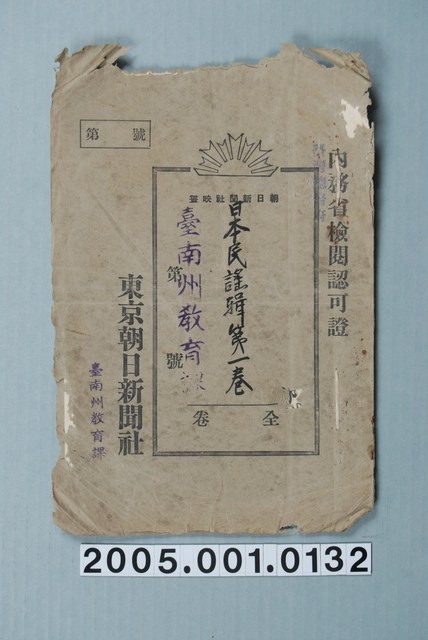 內務省檢閱認可證
號 第
朝日新聞社映畫
日本民謠輯第一卷
第 號
臺南州教育課
全 卷
東京朝日新聞社
臺南州教育課
2005.001.0132